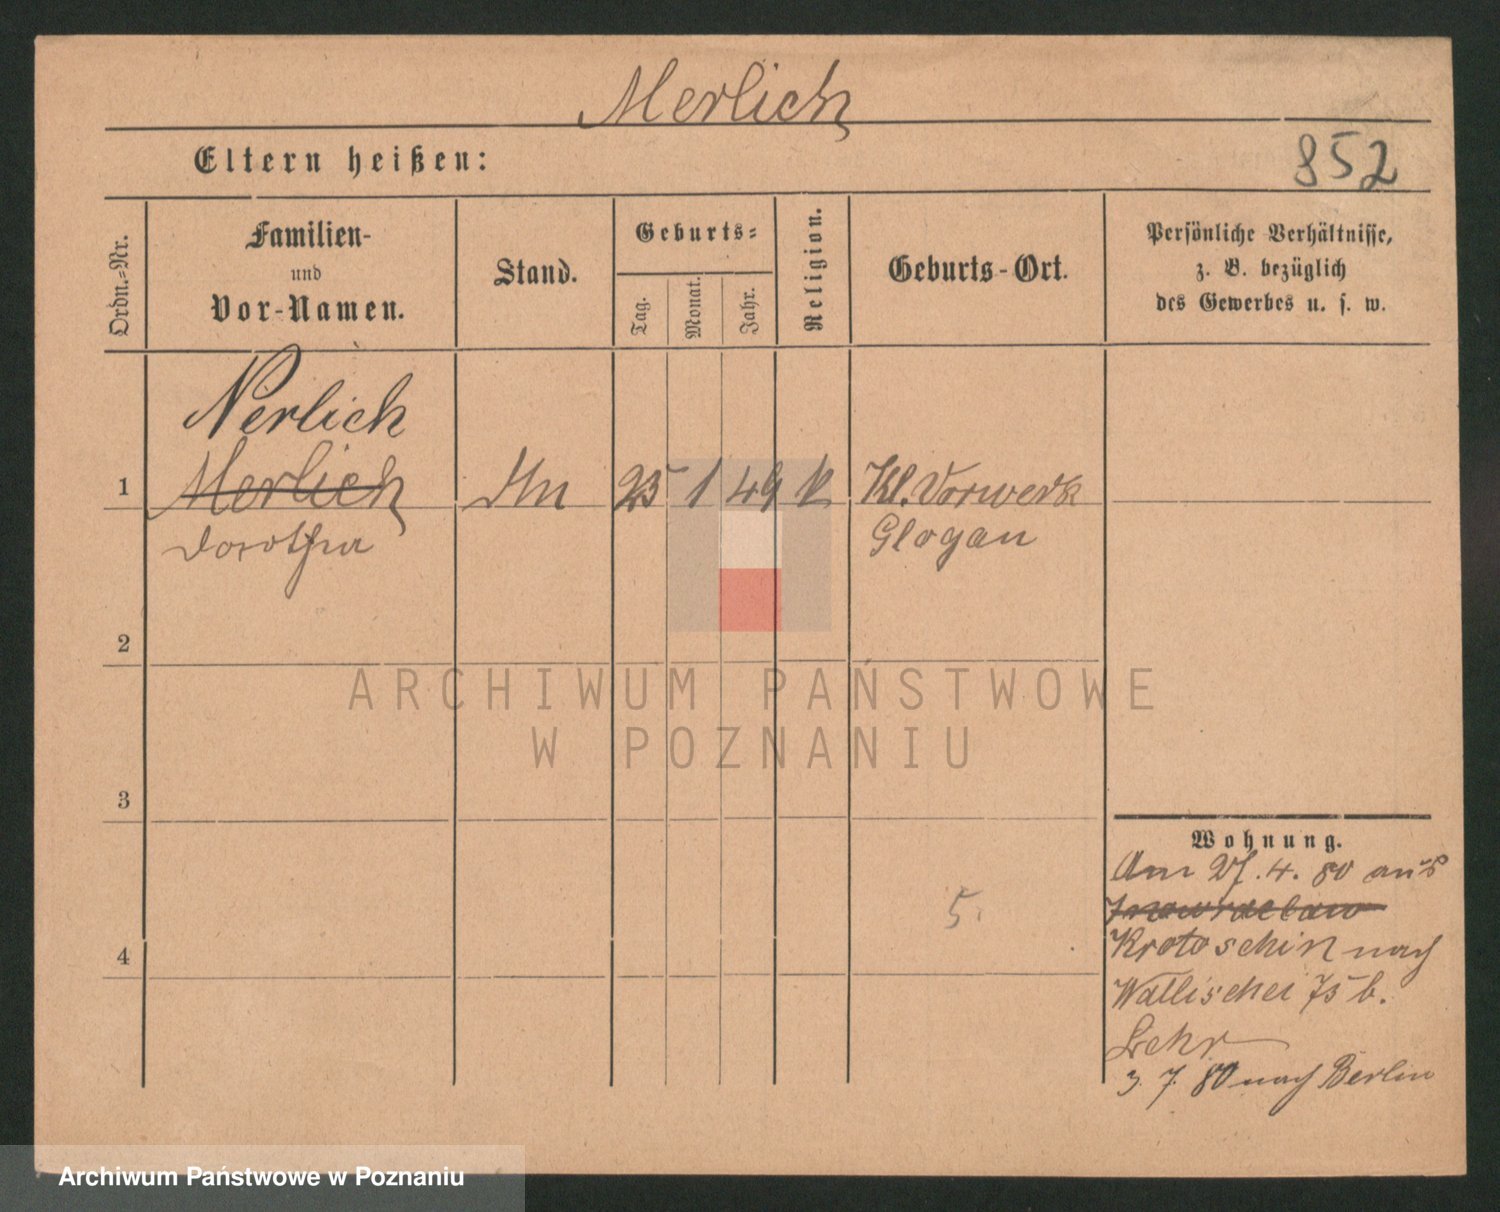 Merlich
Eltern heißen:
852
Ordn.-Nr.
Familien-
und
Vor-Namen.
Stand.
Geburts-
Tag.
Monat.
Jahr.
Religion.
Geburts-Ort.
Persönliche Verhältnisse,
z. B. bezüglich
des Gewerbes u. s. w.
Nerlich
1 Merlich 1 49 k Kl. Vorwerk
Dorothea Glogau
2
ARCHIWUM PAŃSTWOWE
W POZNANIU
3
Wohnung.
Am 27. 4. 80 aus
Inowraclaw
5
Krotoschin nach
4
Wallischei 75 b.
3. 7. 80 nach Berlin
Archiwum Państwowe w Poznaniu